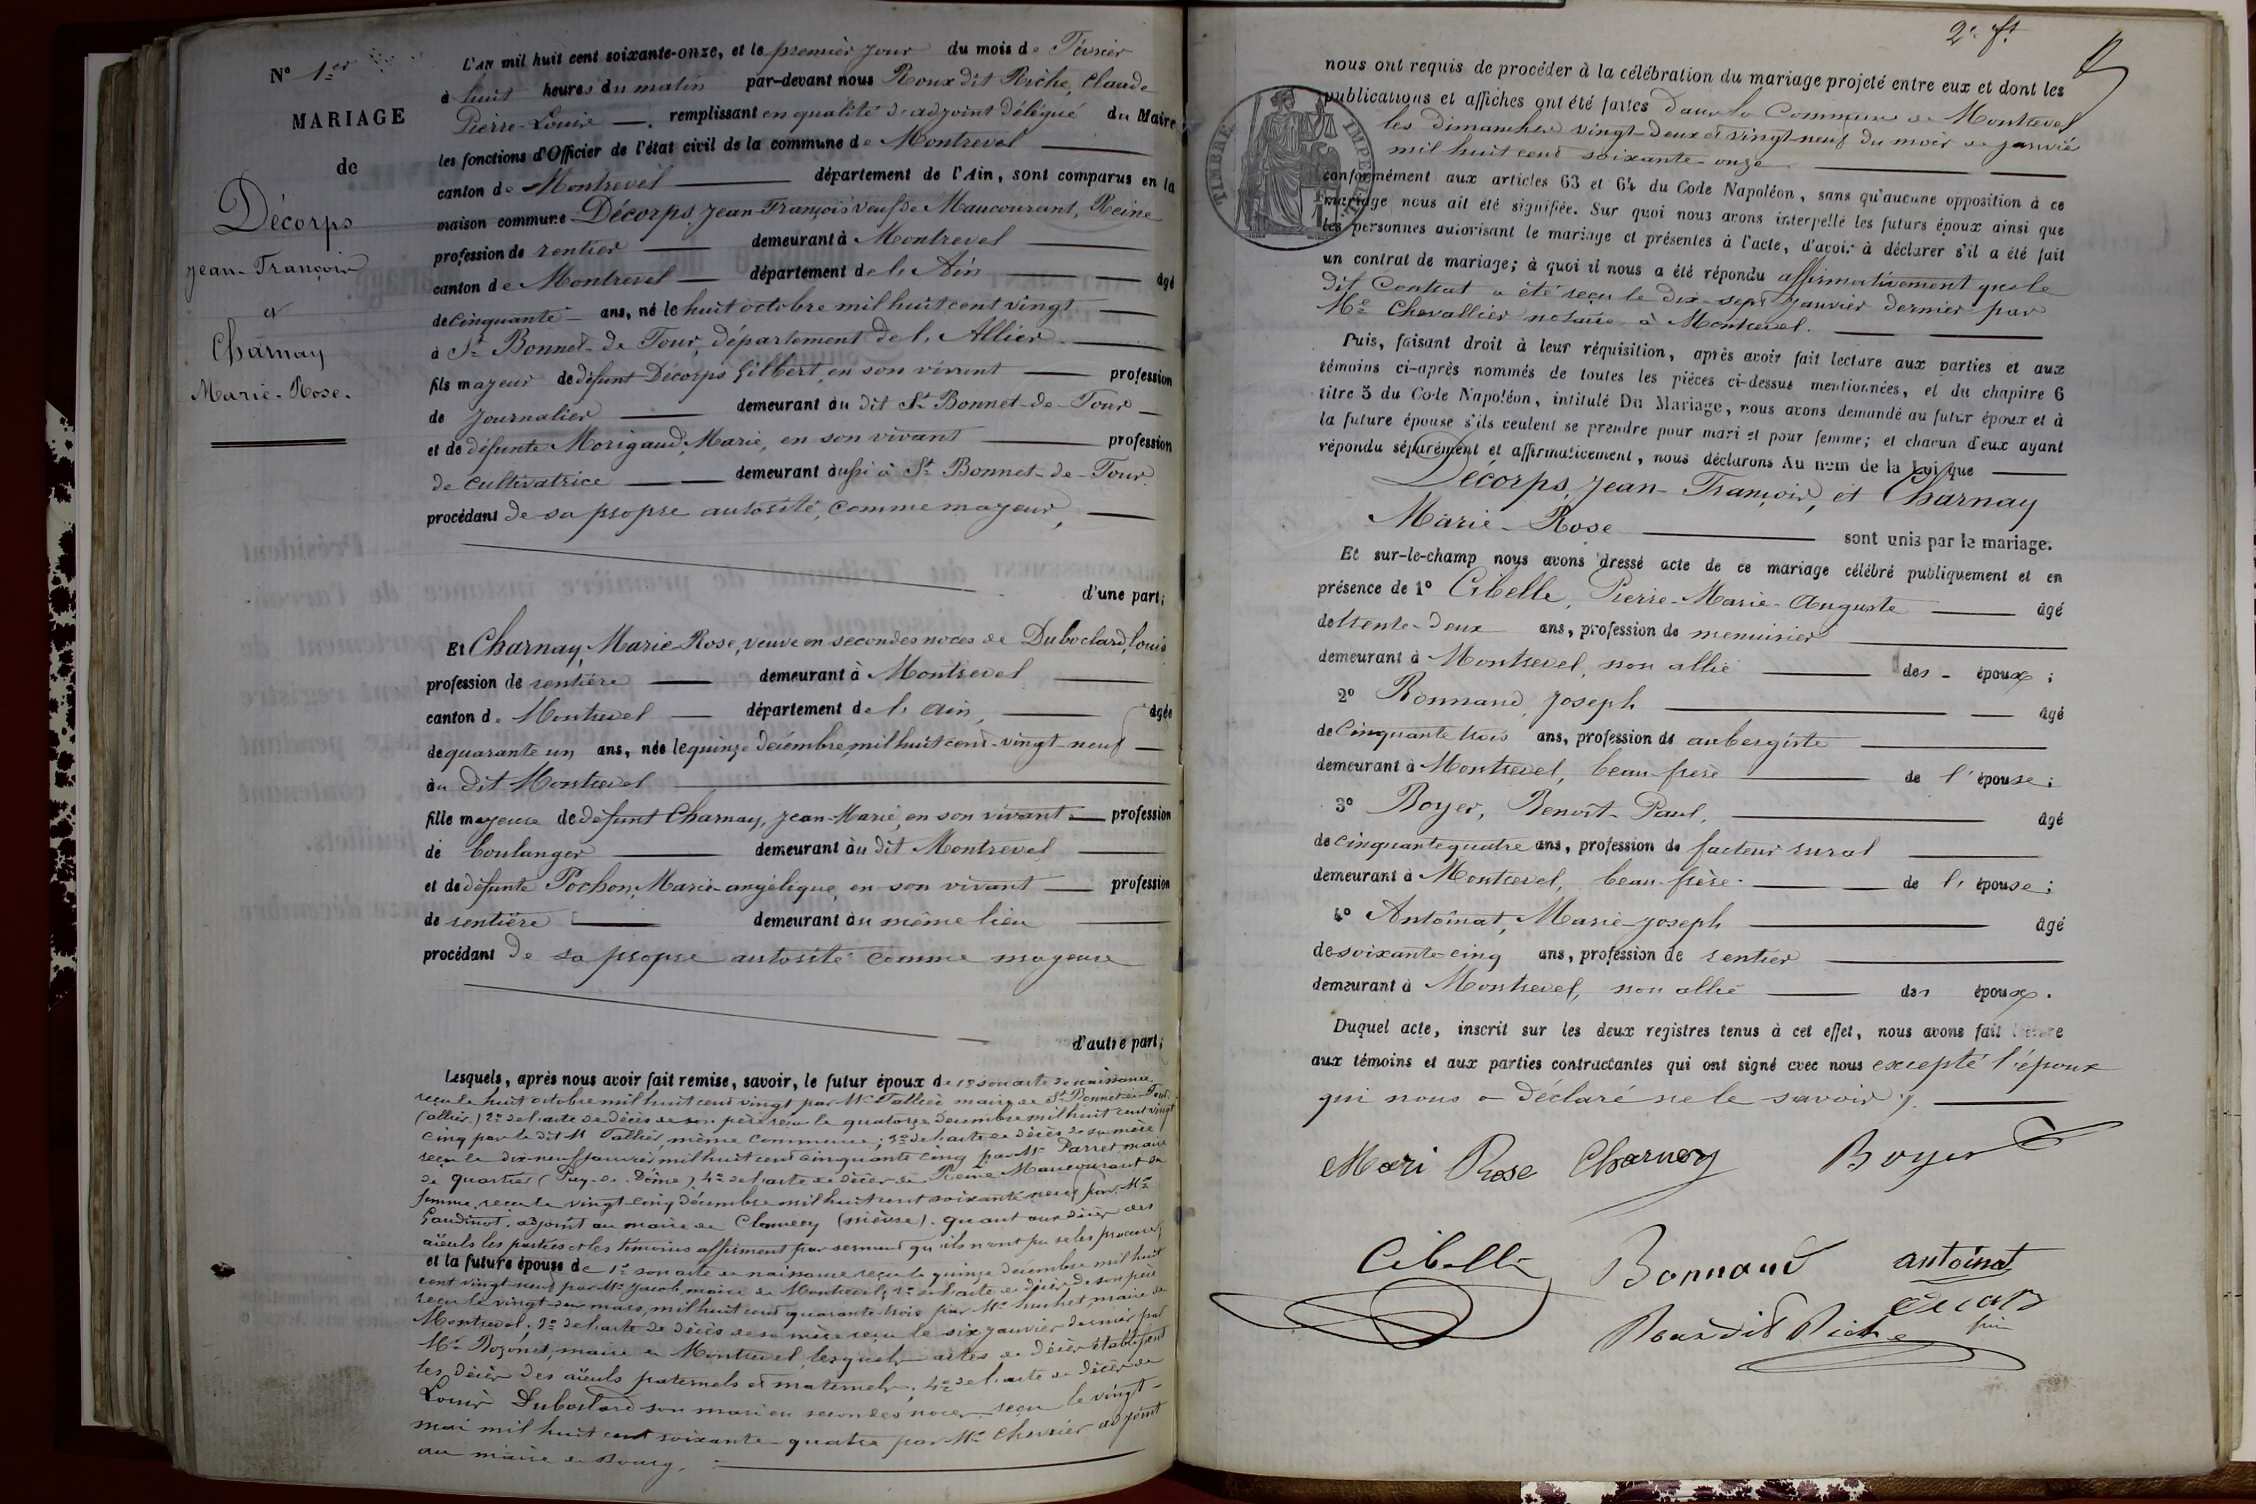 N° 1er
MARIAGE
de
Décorps
Jean-François
et
Charnay
Marie-Rose.
L'AN mil huit cent soixante-onze, et le premier jour du mois de Février
à huit heures du matin par-devant nous Roux dit Riche, Claude
Pierre-Louis remplissant en qualité d'adjoint délégué du Maire
les fonctions d'Officier de l'état civil de la commune de Montrevel
canton de Montrevel département de l'Ain, sont comparus en la
maison commune Décorps, Jean-François veuf de Maucourant, Reine
profession de rentier demeurant à Montrevel
canton de Montrevel département de l'Ain âgé
de cinquante ans, né le huit octobre mil huit cent vingt
à St Bonnet-de-Four, département de l'Allier
fils majeur de défunt Décorps Gilbert, en son vivant profession
de journalier demeurant au dit St Bonnet-de-Four
et de défunte Morigaud, Marie, en son vivant profession
de cultivatrice demeurant aussi à St Bonnet-de-Four
procédant de sa propre autorité, comme majeur,
d'une part;
Et Charnay, Marie-Rose, veuve en secondes noces de Duboclard, Louis
profession de rentière demeurant à Montrevel
canton de Montrevel département de l'Ain, âgée
de quarante un ans, née le quinze décembre mil huit cent vingt-neuf
au dit Montrevel
fille majeure de défunt Charnay, Jean-Marie, en son vivant profession
de boulanger demeurant au dit Montrevel
et de défunte Pochon, Marie-angélique, en son vivant profession
de rentière demeurant au même lieu
procédant de sa propre autorité comme majeure
d'autre part;
Lesquels, après nous avoir fait remise, savoir, le futur époux de 1° son acte de naissance
reçu le huit octobre mil huit cent vingt par Mr Tallier maire de St Bonnet-de-Four
(allier) 2° de l'acte de décès de son père reçu le quatorze décembre mil huit cent vingt
cinq par le dit Mr Tallier, même commune; 3° de l'acte de décès de sa mère
reçu le dix-neuf janvier mil huit cent cinquante cinq par Mr Parret, maire
de quartier (Puy-de-Dôme), 4° de l'acte de décès de Reine Maucourant sa
femme, reçu le vingt-cinq décembre mil huit cent soixante neuf par Mr
Gaudinot, adjoint au maire de Clamecy (nièvre). quant aux décès des
aïeuls les parties et les témoins affirment par serment qu'ils n'ont pu se les procurer;
et la future épouse de 1° son acte de naissance reçu le quinze décembre mil huit
cent vingt-neuf par Mr Jacob, maire de Montrevel; 2° de l'acte de décès de son père
reçu le vingt-deux mars, mil huit cent quarante-trois par Mr huchet, maire de
Montrevel; 3° de l'acte de décès de sa mère reçu le six janvier dernier par
Mr Bozonet, maire de Montrevel, lesquels actes de décès établissent
les décès des aïeuls paternels et maternels; 4° de l'acte de décès de
Louis Duboclard son mari en secondes noces, reçu le vingt-
mai mil huit cent soixante-quatre par Mr Chevrier adjoint
au maire de Bourg.
2e ft
nous ont requis de procéder à la célébration du mariage projeté entre eux et dont les
publications et affiches ont été faites dans la Commune de Montrevel
les dimanches vingt-deux et vingt-neuf du mois de janvier
mil huit cent soixante-onze
TIMBRE IMPÉRIAL
conformément aux articles 63 et 64 du Code Napoléon, sans qu'aucune opposition à ce
mariage nous ait été signifiée. Sur quoi nous avons interpellé les futurs époux ainsi que
les personnes autorisant le mariage et présentes à l'acte, d'avoir à déclarer s'il a été fait
un contrat de mariage; à quoi il nous a été répondu affirmativement que le
dit Contrat a été reçu le dix-sept Janvier dernier par
Me Chevallier notaire à Montrevel.
Puis, faisant droit à leur réquisition, après avoir fait lecture aux parties et aux
témoins ci-après nommés de toutes les pièces ci-dessus mentionnées, et du chapitre 6
titre 5 du Code Napoléon, intitulé Du Mariage, nous avons demandé au futur époux et à
la future épouse s'ils veulent se prendre pour mari et pour femme; et chacun d'eux ayant
répondu séparément et affirmativement, nous déclarons Au nom de la Loi que
Décorps, Jean-François, et Charnay
Marie-Rose sont unis par le mariage.
Et sur-le-champ nous avons dressé acte de ce mariage célébré publiquement et en
présence de 1° Cibelle, Pierre-Marie-Auguste âgé
de trente-deux ans, profession de menuisier
demeurant à Montrevel, non allié des époux;
2° Bonnand, Joseph âgé
de cinquante trois ans, profession de aubergiste
demeurant à Montrevel, beau-frère de l'épouse;
3° Boyer, Benoît-Paul, âgé
de cinquante quatre ans, profession de facteur rural
demeurant à Montrevel, beau-frère de l'épouse;
4° Antoinat, Marie-Joseph âgé
de soixante-cinq ans, profession de rentier
demeurant à Montrevel, non allié des époux.
Duquel acte, inscrit sur les deux registres tenus à cet effet, nous avons fait lecture
aux témoins et aux parties contractantes qui ont signé avec nous excepté l'époux
qui nous a déclaré ne le savoir.
Mari Rose Charnay Boyer
Cibelle Bonnand antoinat
Roux dit Riche